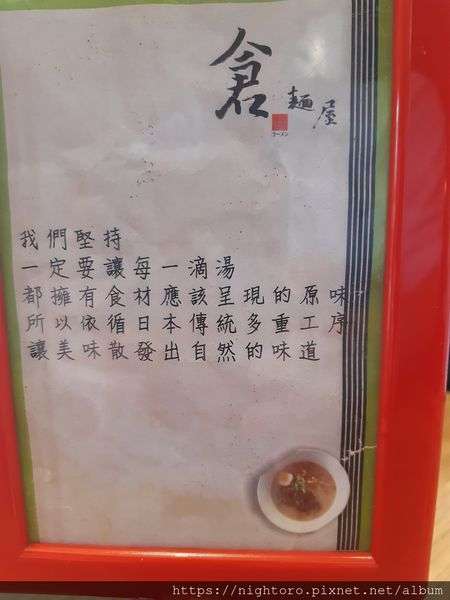 倉
麵屋
ラーメン
我們堅持
一定要讓每一滴湯
都擁有食材應該呈現的原味
所以依循日本傳統多重工序
讓美味散發出自然的味道
https://nightoro.pixnet.net/album